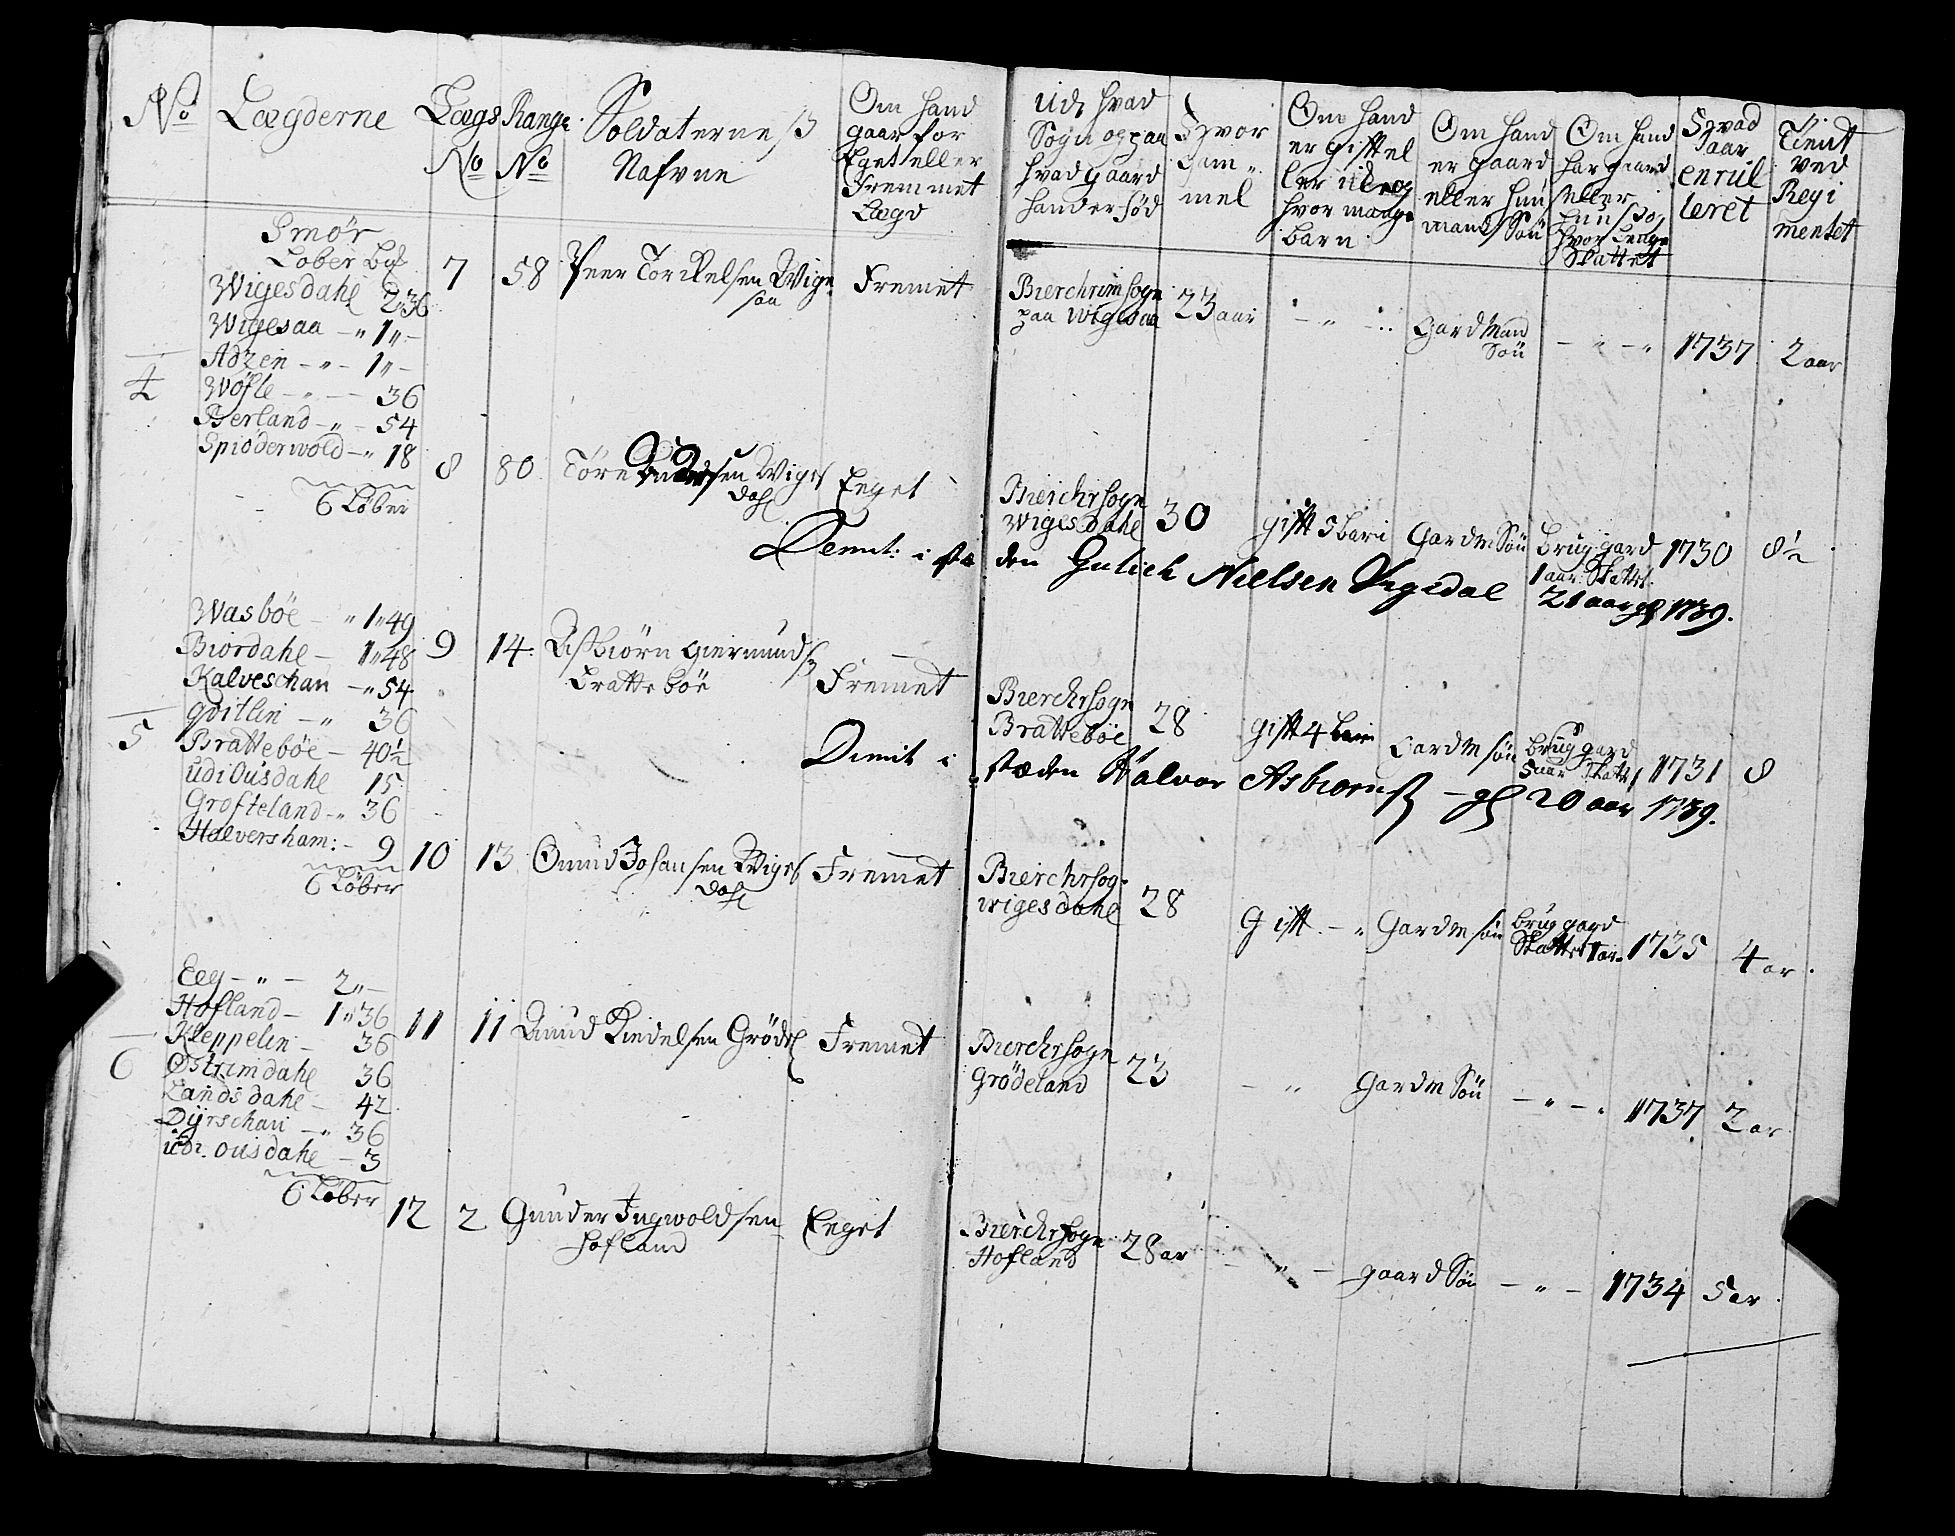 No
Lægderne
Lægs
No
Range
No
Soldaternes
Nafvne
Om hand
gaar for
Eget eller
Fremmet
Lægd
Udj hvad
Sogn og paa
hvad gaard
hand er fód
Hvor
Gam„
mel
Om hand
er gift el
ler ú og
hvor mange
barn
Om hand
er gaard
eller hús
mands Sön
Om hand
har gaard
eller
huus og
hvor lenge
Skattet
Hvad
aar
enrul
leret
Tient
ved
Regi
mentet
Smór
Lober
Wigesdahl 2„36
Wigesaa – „ 1„–
Adzen – „ – 1„–
4 Wófle – „ – 36
Berland – „ – 54
Spióderwold – „ 18
6 Lóber
7 58 Peer Torckelsen Wige
saa
Fremet
Bierchrimsogn
paa Wigesaa
23 aar
– „ –
Gardmand
Són
– „ – „
1737
2 aar
8 80 Tóre
Wiges
dahl
Eeget
Bierchrsogn
Wigesdahl
30
gift 5 barn
Gardm Sön
brug gard
1 aar Skattet
1730
8½
Demit: i stæden Gulick Nielsen Vigedal
21 aar gl 1739.
Wasbóe – „ 1„49
Biordahl – 1„48
Kalveschau – „ 54
qvitlin – „ 36
5 Brattebóe – 40½
údi Oúsdahl 15
Grofteland – „ 36
Halversham: – 9
6 Lóber
9 14 Asbiórn giermunds
brattebóe
Fremet
Bierchrsogn
Brattebóe
28
gift 4 barn
Gardm són
brúg gard
5 aar Skatt
1731
8
Dimit i stæden Halvor Asbiornss – gl 20 aar 1739.
10 13 Omund Johansen Wiges
dahl
Fremet
Bierchrsog
wigesdahl
28
Gift – „
Gardm són
brug gard
Skattet 1 ar
1735
4 ar
Eeg – „ – 2„–
Hofland – 1„36
Kleppelin – 36
6 Ostrimdahl 36
Landsdahl – 42
Dÿrschau – „ 36
údi. oúsdahl – 3
6 Lóber
11 11 Amund Kiedelsen Gródel
Fremet
Bierchrsogn
Gródeland
23
– „
Gardm Sön
– „ – „
1737
2 ar
12 2 Gunder Ingwoldsen
Hofland
Eeget
Bierchrsogn
Hofland
28 ar
– „ –
gaard Sön
– „ –
1734
5 ar